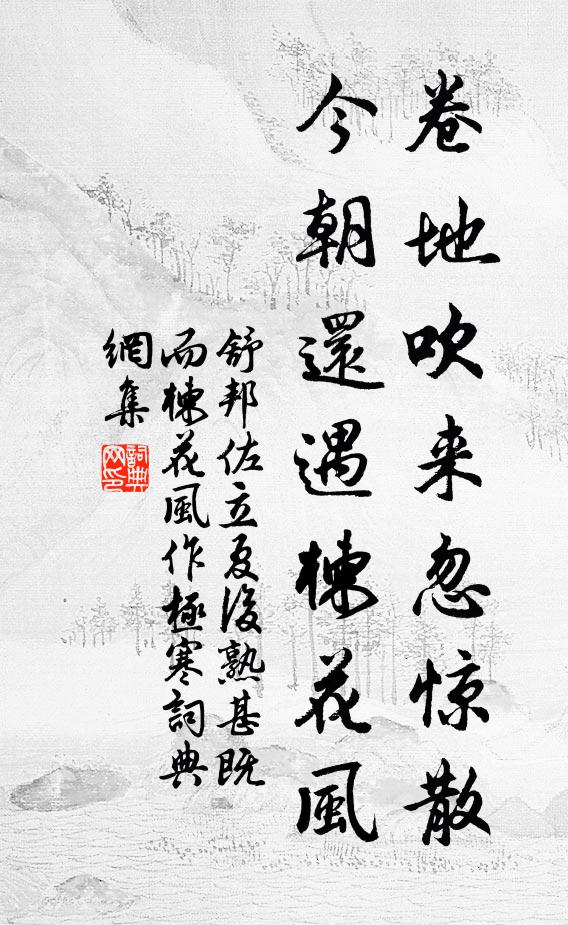 卷地吹来忽惊散
今朝還遇楝花風
舒邦佐立夏後熟甚既
而楝花風作極寒詞典
網集
詞典
网印